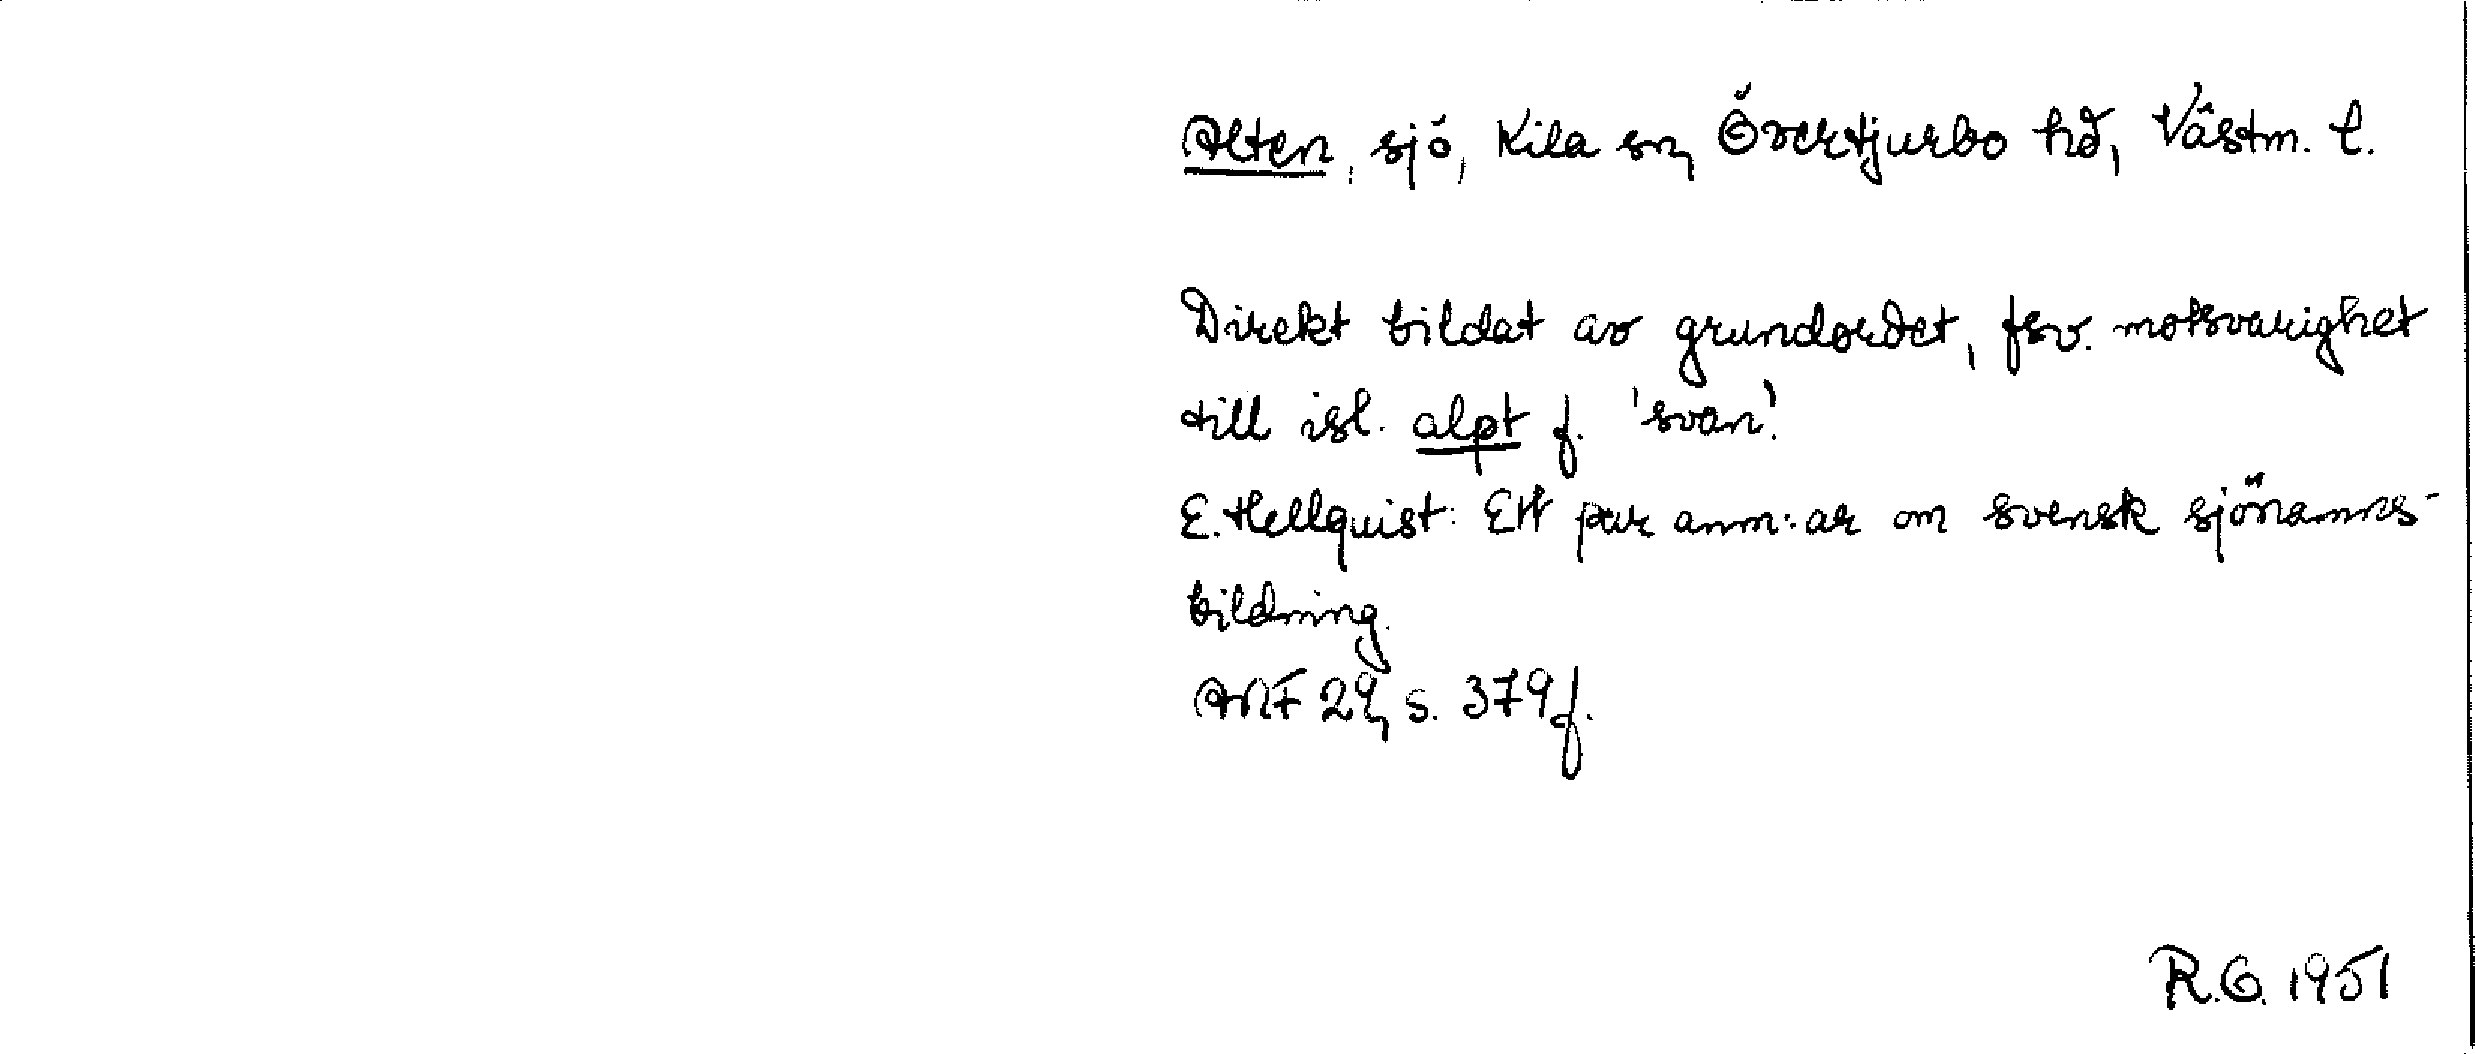 Alten, sjö, Kila sn, Övertjurbo hd, Västm. l.
Direkt bildat av grundordet, fsv. motsvarighet
till isl. alpt f. 'svan'.
E. Hellquist: Ett par anm:ar om svensk sjönamns-
bildning.
ANF 29, s. 379 f.
R.G. 1951